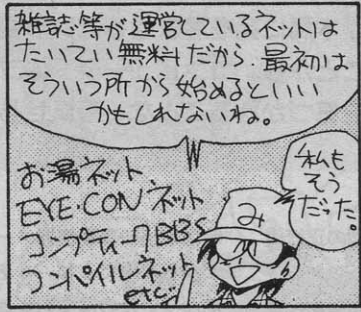 雑誌等が運営しているネットは
たいてい無料だから、最初は
そういう所から始めるといい
かもしれないね。
お湯ネット
EYE・CONネット
コンプティークBBS
コンパイルネット
etc
私も
そう
だった。
み